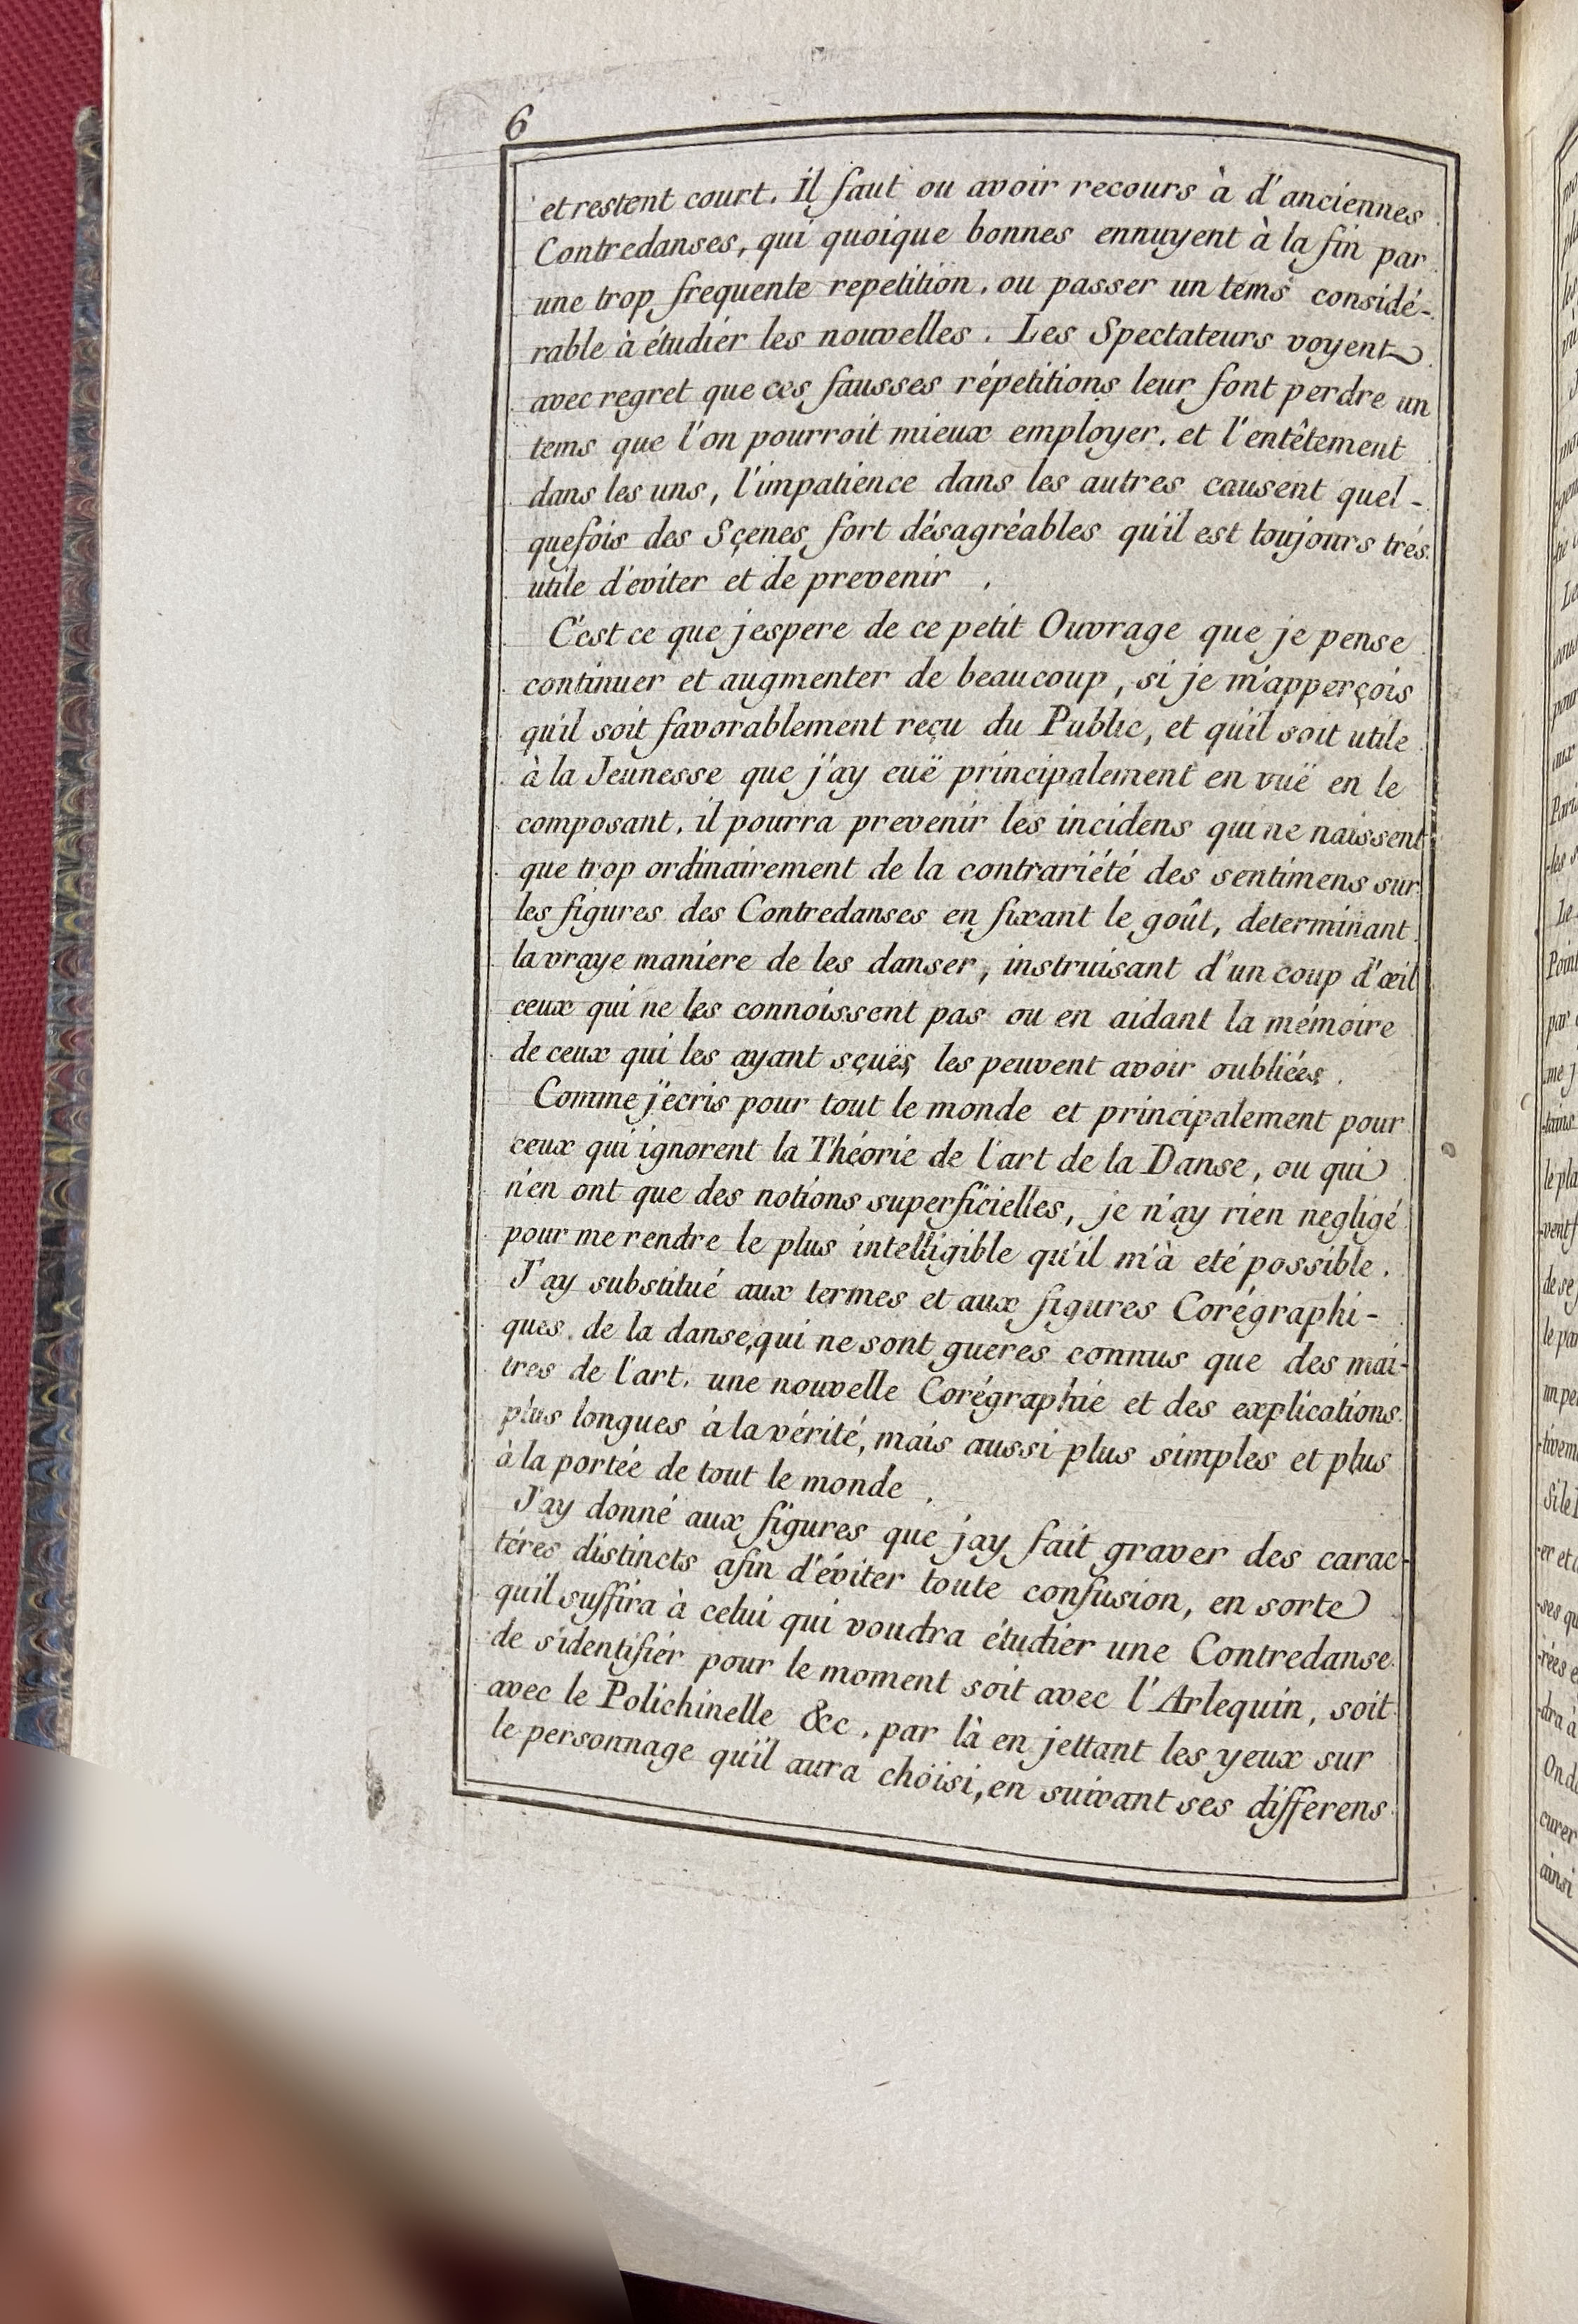 6
et restent court. Il faut ou avoir recours à d'anciennes
Contredanses, qui quoique bonnes ennuyent à la fin par
une trop frequente repetition, ou passer un tems considé-
rable à étudier les nouvelles. Les Spectateurs voyent
avec regret que ces fausses répetitions leur font perdre un
tems que l'on pourroit mieux employer, et l'entêtement
dans les uns, l'impatience dans les autres causent quel-
quefois des Sçenes fort désagréables qu'il est toujours trés
utile d'eviter et de prevenir.
C'est ce que j'espere de ce petit Ouvrage que je pense
continuer et augmenter de beaucoup, si je m'apperçois
qu'il soit favorablement reçu du Public, et qu'il soit utile
à la Jeunesse que j'ay euë principalement en vuë en le
composant. il pourra prevenir les incidens qui ne naissent
que trop ordinairement de la contrariété des sentimens sur
les figures des Contredanses en fixant le goût, determinant
la vraye maniere de les danser, instruisant d'un coup d'œil
ceux qui ne les connoissent pas ou en aidant la mémoire
de ceux qui les ayant sçuës, les peuvent avoir oubliées.
Comme j'ecris pour tout le monde et principalement pour
ceux qui ignorent la Théorie de l'art de la Danse, ou qui
n'en ont que des notions superficielles, je n'ay rien negligé
pour me rendre le plus intelligible qu'il m'à eté possible.
J'ay substitué aux termes et aux figures Corégraphi-
ques, de la danse, qui ne sont gueres connus que des mai-
tres de l'art, une nouvelle Corégraphie et des explications
plus longues à la vérité, mais aussi plus simples et plus
à la portée de tout le monde.
J'ay donné aux figures que j'ay fait graver des carac-
téres distincts afin d'éviter toute confusion, en sorte
qu'il suffira à celui qui voudra étudier une Contredanse
de s'identifier pour le moment soit avec l'Arlequin, soit
avec le Polichinelle &c, par là en jettant les yeux sur
le personnage qu'il aura choisi, en suivant ses differens